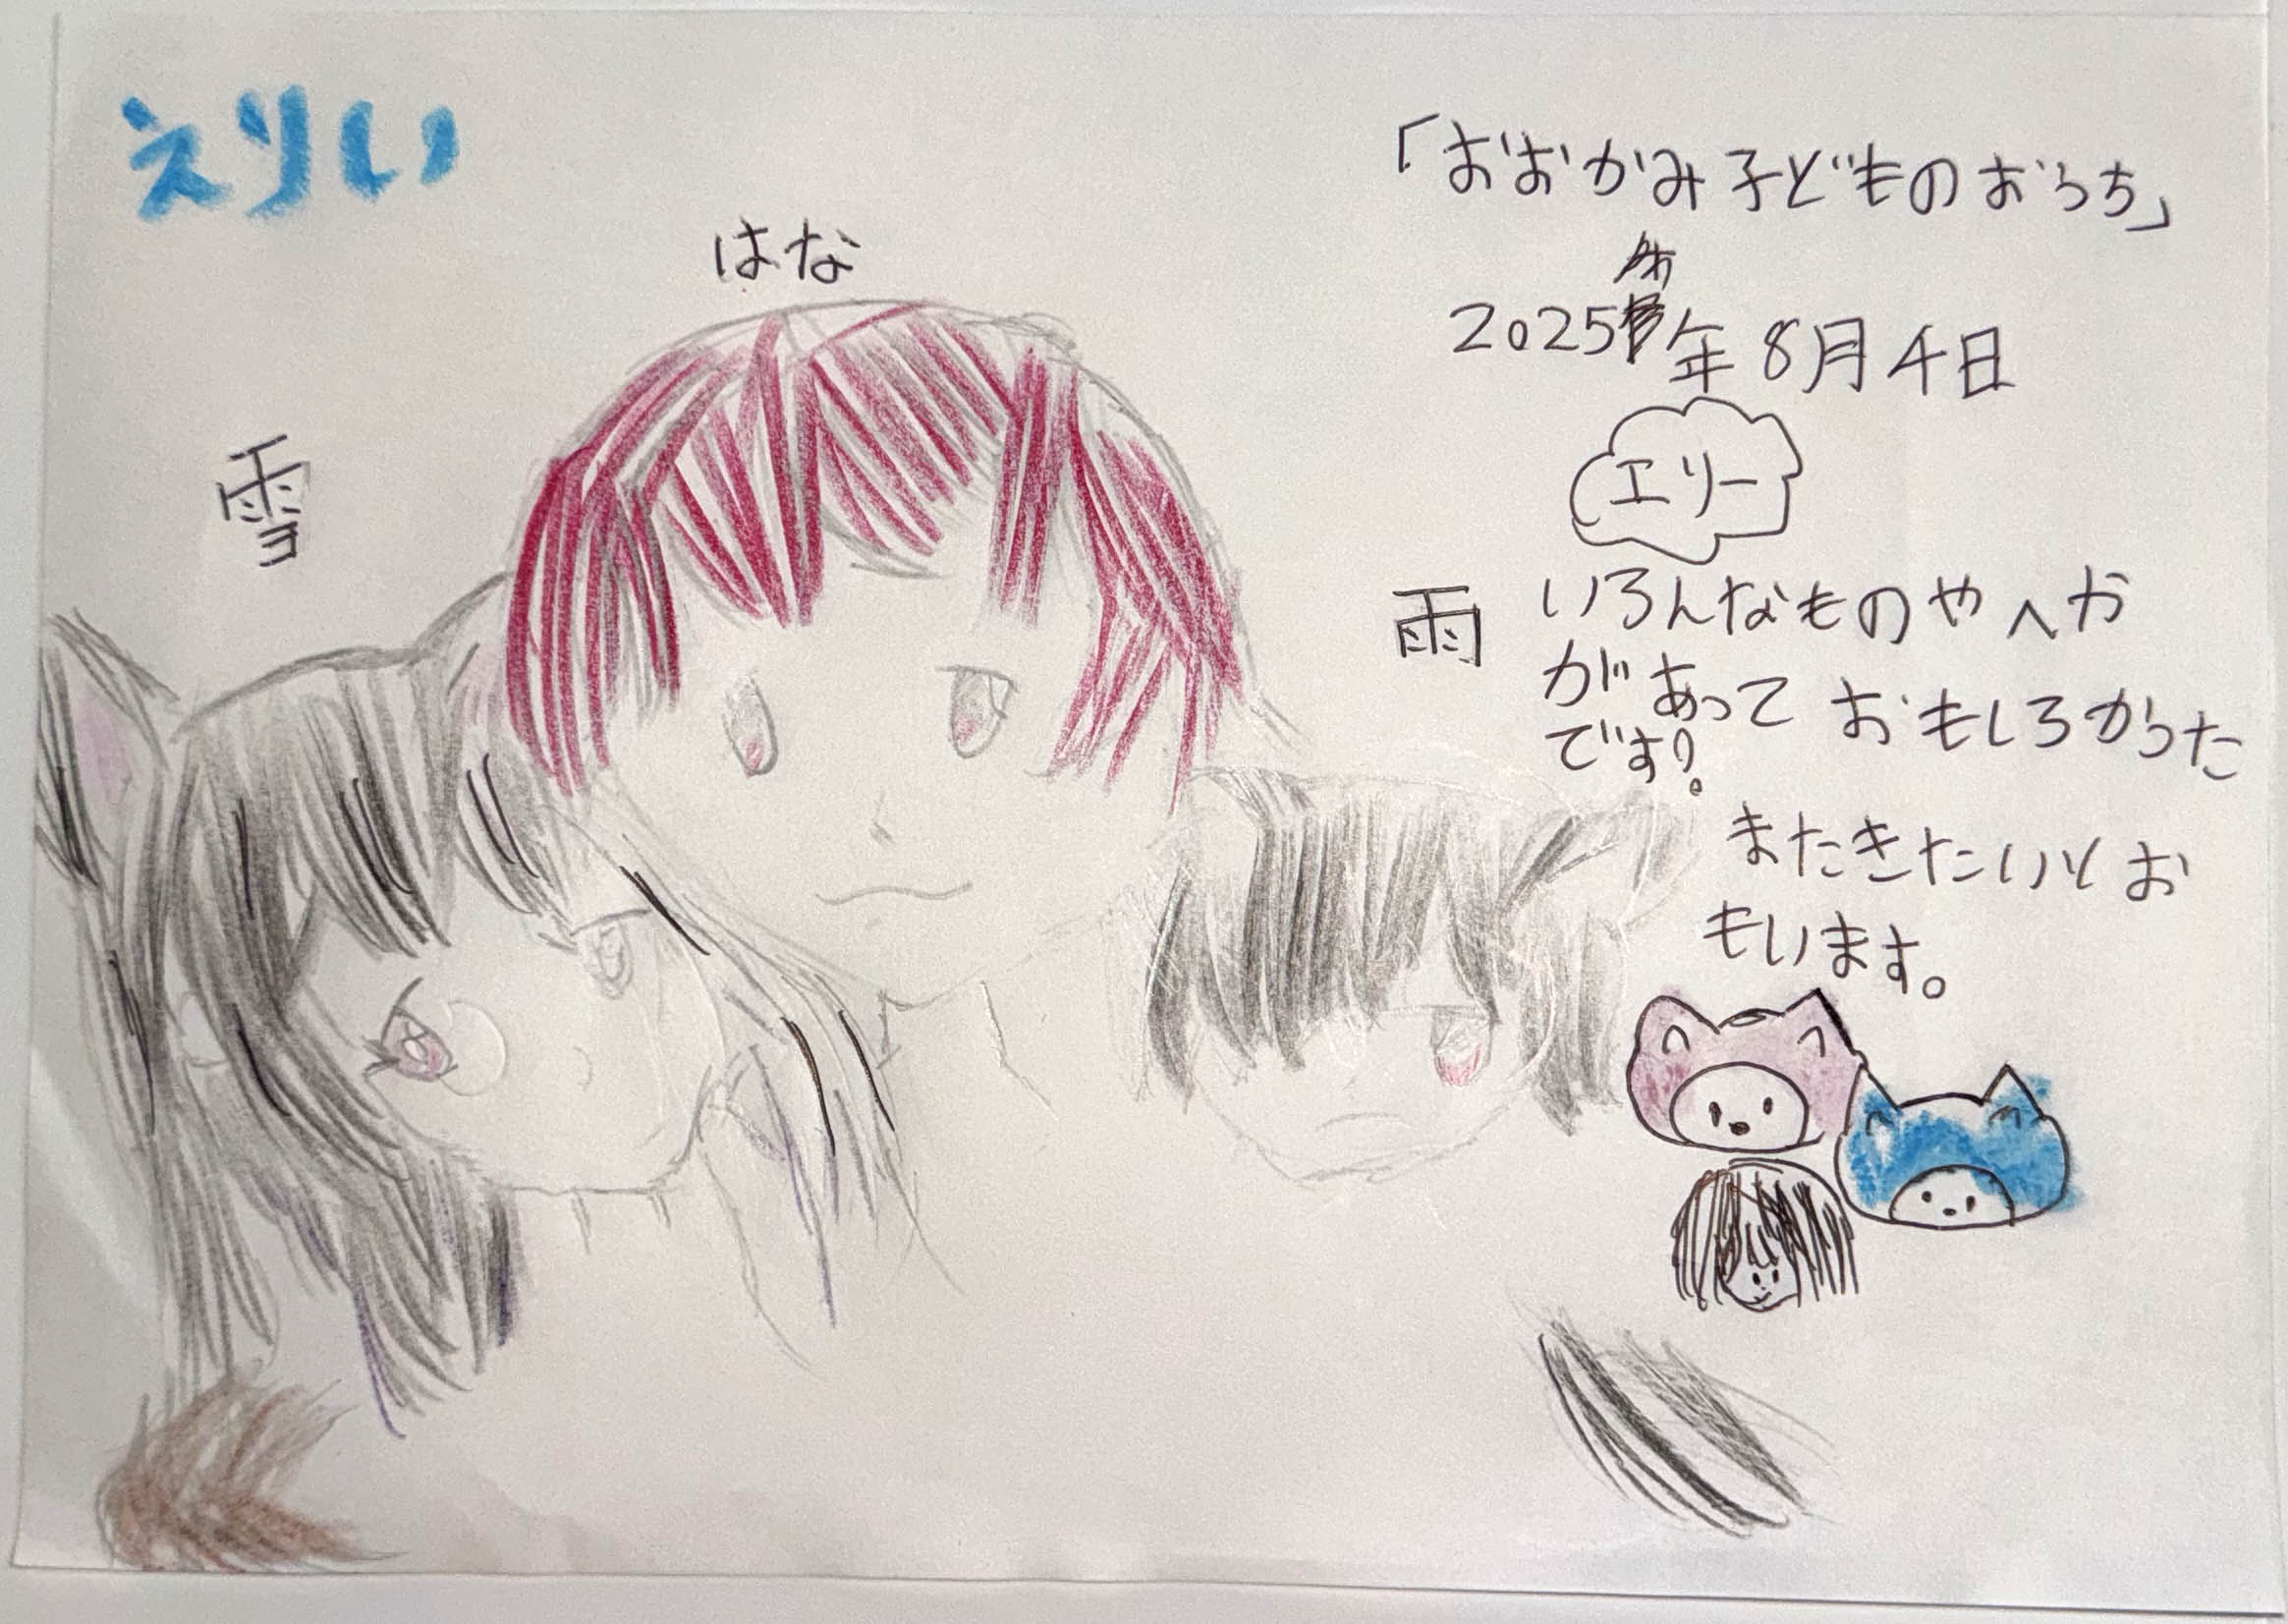 えりい
はな
雪
雨
「おおかみ子どものおうち」
2025年8月4日
エリー
いろんなものやへや
があっておもしろかった
です!
またきたいとお
もいます。